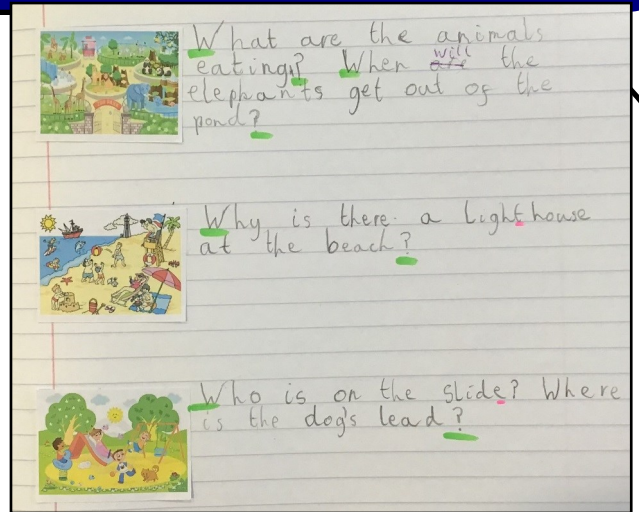 What are the animals
eating? When will the
elephants get out of the
pond?
Why is there a Lighthouse
at the beach?
Who is on the slide? Where
is the dog's lead?